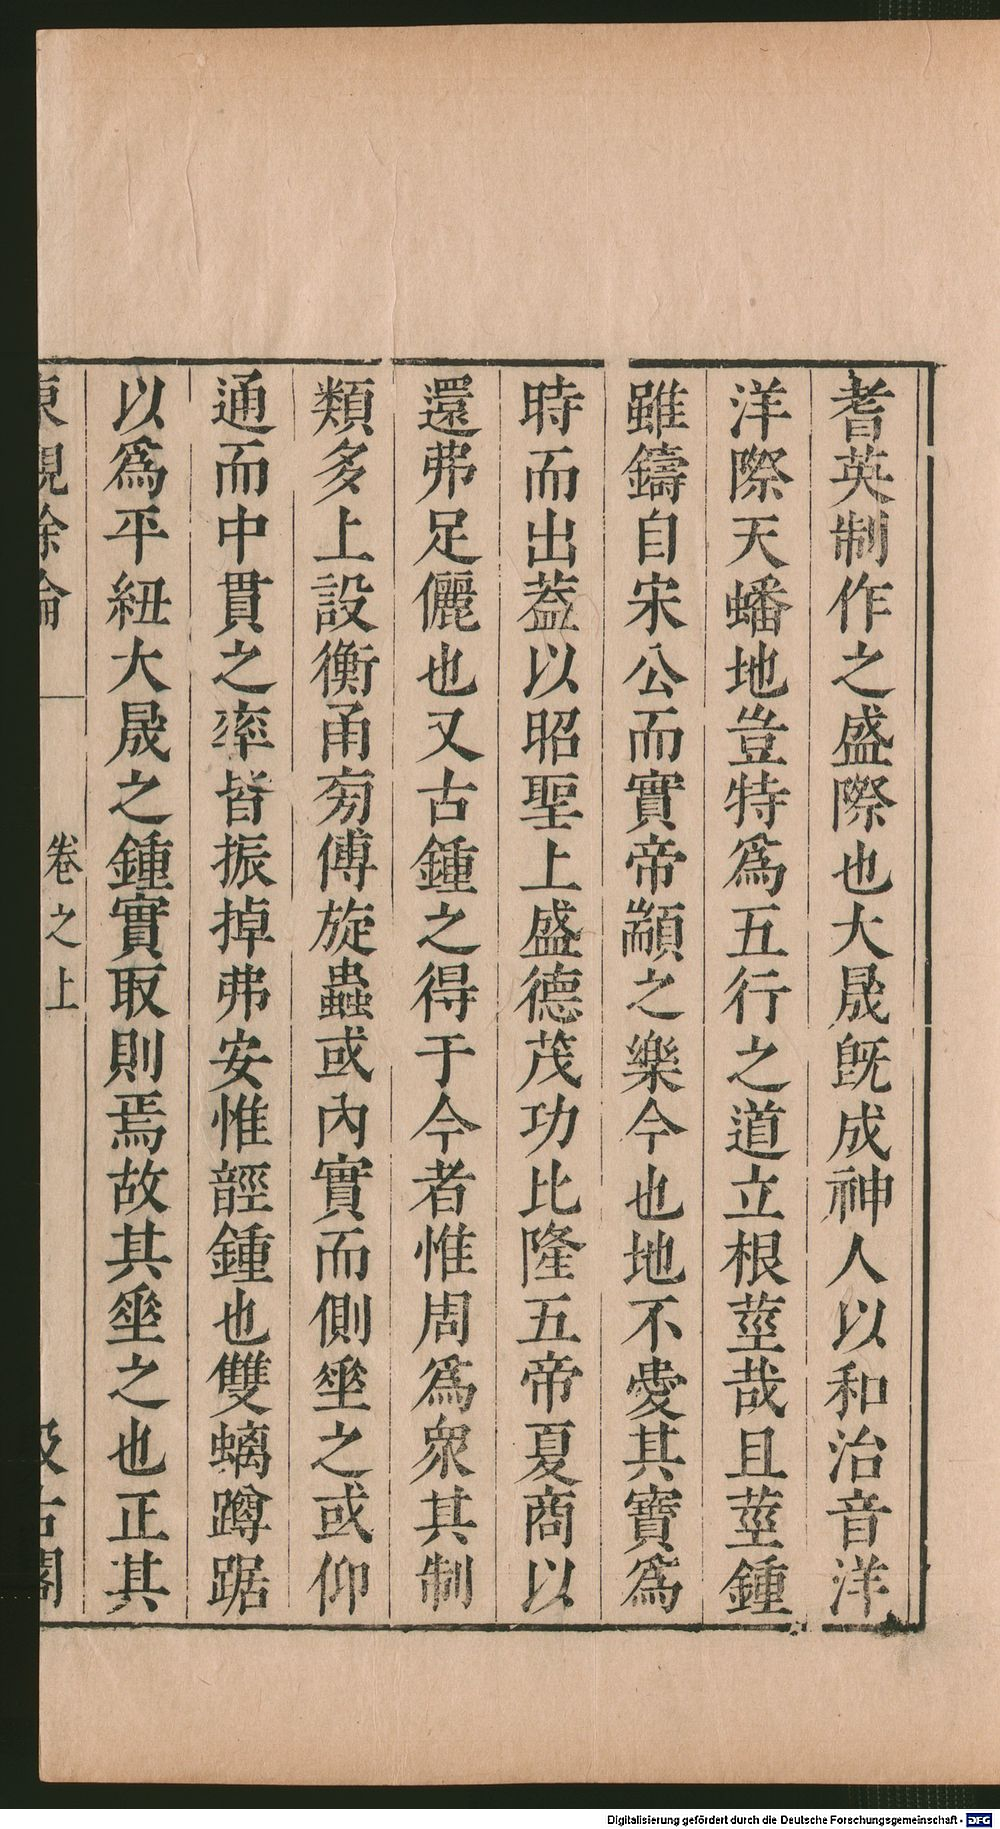 耆英制作之盛際也大晟旣成神人以和治音洋
洋際天蟠地豈特爲五行之道立根莖哉且莖鍾
雖鑄自宋公而實帝顓之樂今也地不愛其寶爲
時而出葢以昭聖上盛德茂功比隆五帝夏商以
還弗足儷也又古鍾之得于今者惟周爲衆其制
類多上設衡甬旁傅旋蟲或內實而側垂之或仰
通而中貫之率皆振掉弗安惟䪫鍾也雙螭蹲踞
以爲平紐大晟之鍾實取則焉故其垂之也正其
東觀餘論 卷之上 汲古閣
Digitalisierung gefördert durch die Deutsche Forschungsgemeinschaft - DFG